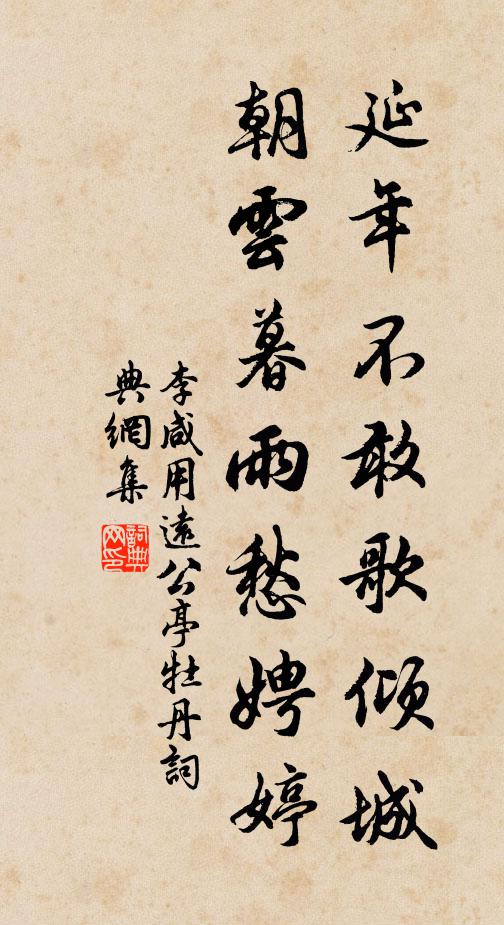 延年不敢歌傾城
朝雲暮雨愁娉婷
李咸用遠公亭牡丹詞
典網集
詞典網印